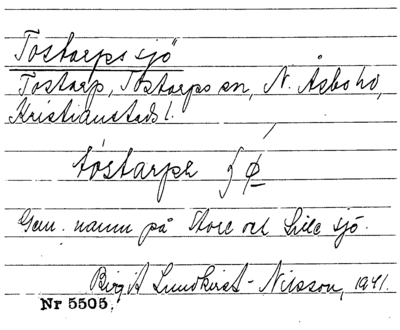 Tostarps sjö
Tostarp, Tostarps sn, N. Åsbo hd,
Kristianstads l.
tóstarpa ʃø
Gem. namn på Store och Lille sjö.
Birgit Lundkvist-Nilsson, 1941.
Nr 5505.